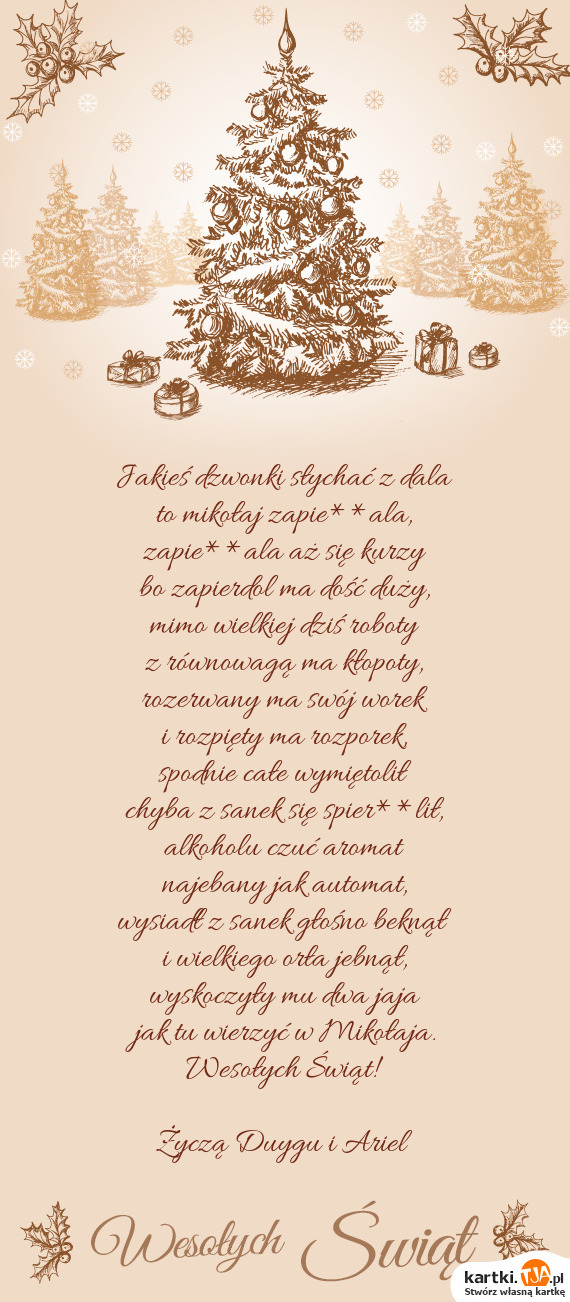 Jakieś dzwonki słychać z dala
to mikołaj zapie**ala,
zapie**ala aż się kurzy
bo zapierdol ma dość duży,
mimo wielkiej dziś roboty
z równowagą ma kłopoty,
rozerwany ma swój worek
i rozpięty ma rozporek,
spodnie całe wymiętolił
chyba z sanek się spier**lił,
alkoholu czuć aromat
najebany jak automat,
wysiadł z sanek głośno beknął
i wielkiego orła jebnął,
wyskoczyły mu dwa jaja
jak tu wierzyć w Mikołaja.
Wesołych Świąt!
Życzą Duygu i Ariel
Wesołych Świąt
kartki.TJA.pl
Stwórz własną kartkę